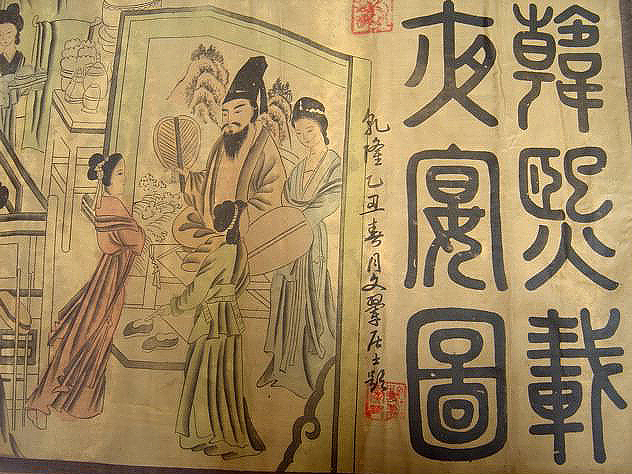 韓熙載
夜宴圖
乾隆乙丑春月文翠居士題